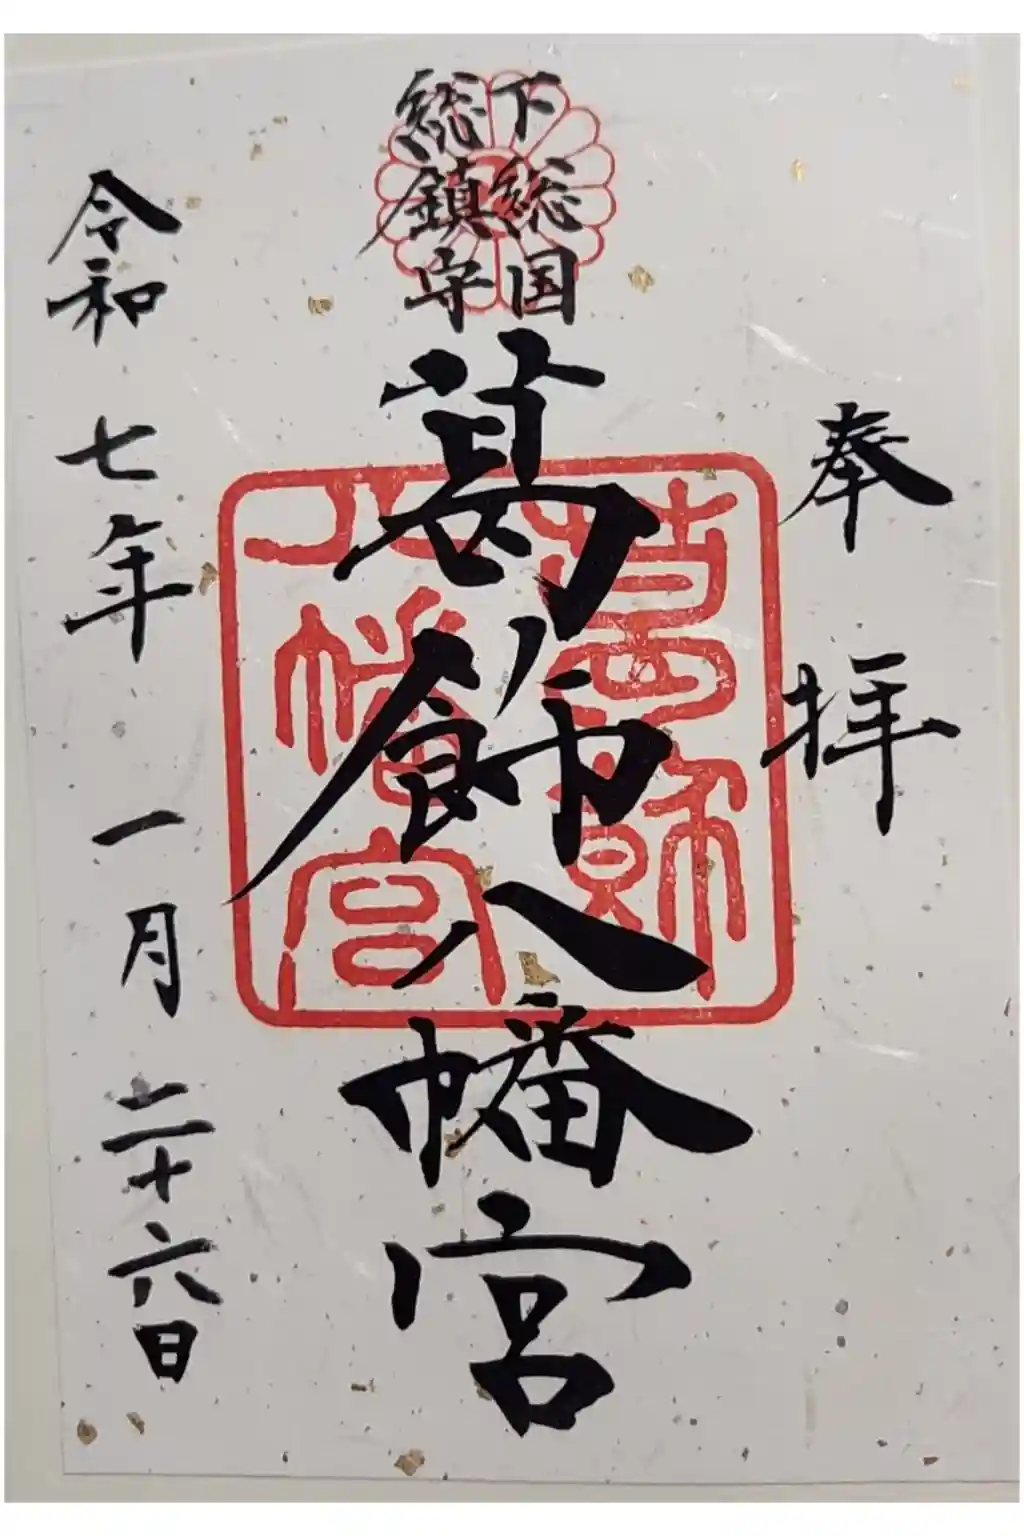 奉拝
下総国
総鎮守
葛飾八幡宮
葛飾
八幡宮
令和七年一月二十六日